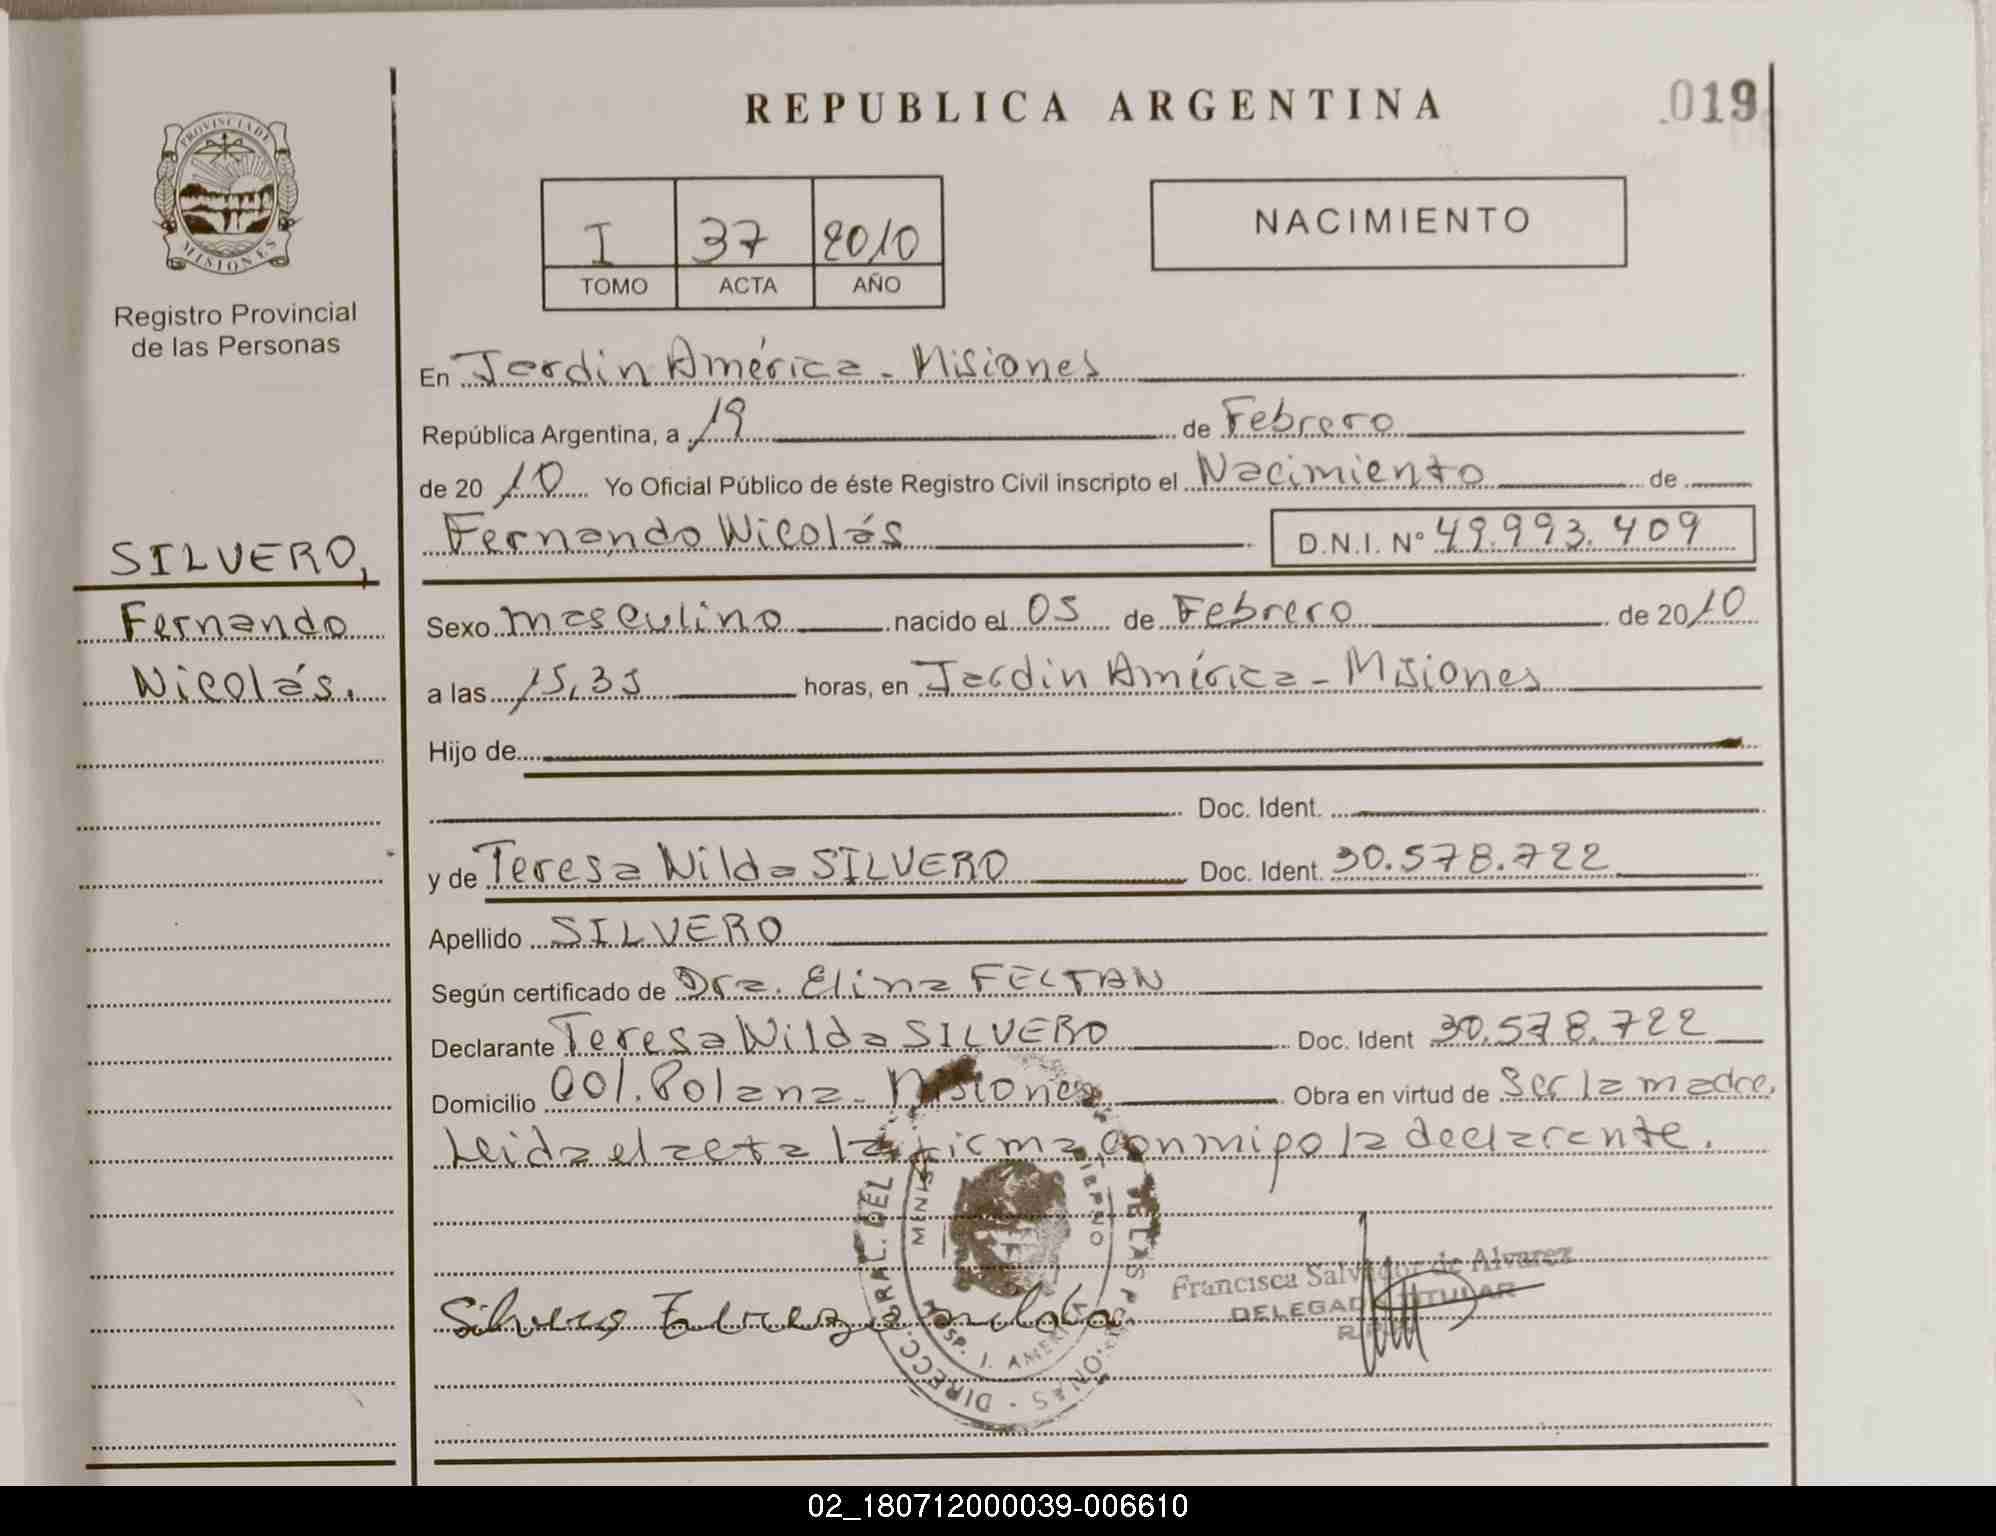 REPUBLICA ARGENTINA
019
PROVINCIA DE
MISIONES
Registro Provincial
de las Personas
I 37 2010
TOMO ACTA AÑO
NACIMIENTO
En Jardin América - Misiones
República Argentina, a 19 de Febrero
de 20 10 Yo Oficial Público de éste Registro Civil inscripto el Nacimiento de
Fernando Nicolás D.N.I. Nº 49.993.409
SILVERO,
Fernando
Nicolás.
Sexo masculino nacido el 05 de Febrero de 2010
a las 15,35 horas, en Jardin América - Misiones
Hijo de
Doc. Ident.
y de Teresa Nilda SILVERO Doc. Ident. 30.578.722
Apellido SILVERO
Según certificado de Dra. Elina FELTAN
Declarante Teresa Nilda SILVERO Doc. Ident 30.578.722
Domicilio Col. Polana - Misiones Obra en virtud de Ser la madre.
Leida el acta la firma conmigo la declarante.
Silvero
Francisca Salvador de Alvarez
DELEGADA TITULAR
DIRECC. GRAL. DEL DE LAS
02_180712000039-006610